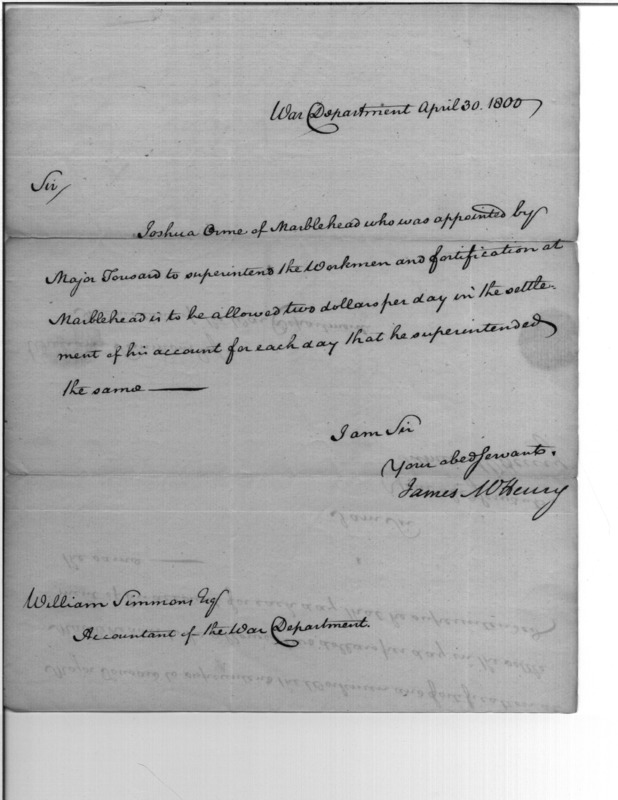 War Department April 30. 1800
Sir
Joshua Orne of Marblehead who was appointed by
Major Tousard to superintend the Workmen and fortification at
Marblehead is to be allowed two dollars per day in the settle-
ment of his account for each day that he superintended
the same
I am Sir
Your obed Servant.
James McHenry
William Simmons Esq
Accountant of the War Department.